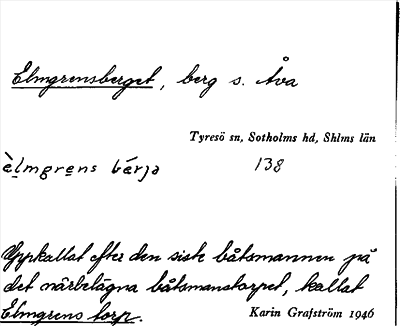 Elmgrensberget, berg s. Åva
Tyresö sn, Sotholms hd, Shlms län
èlmgrens bárja 138
Uppkallat efter den siste båtsmannen på
det närbelägna båtsmanstorpet, kallat
Elmgrens torp.
Karin Grafström 1946